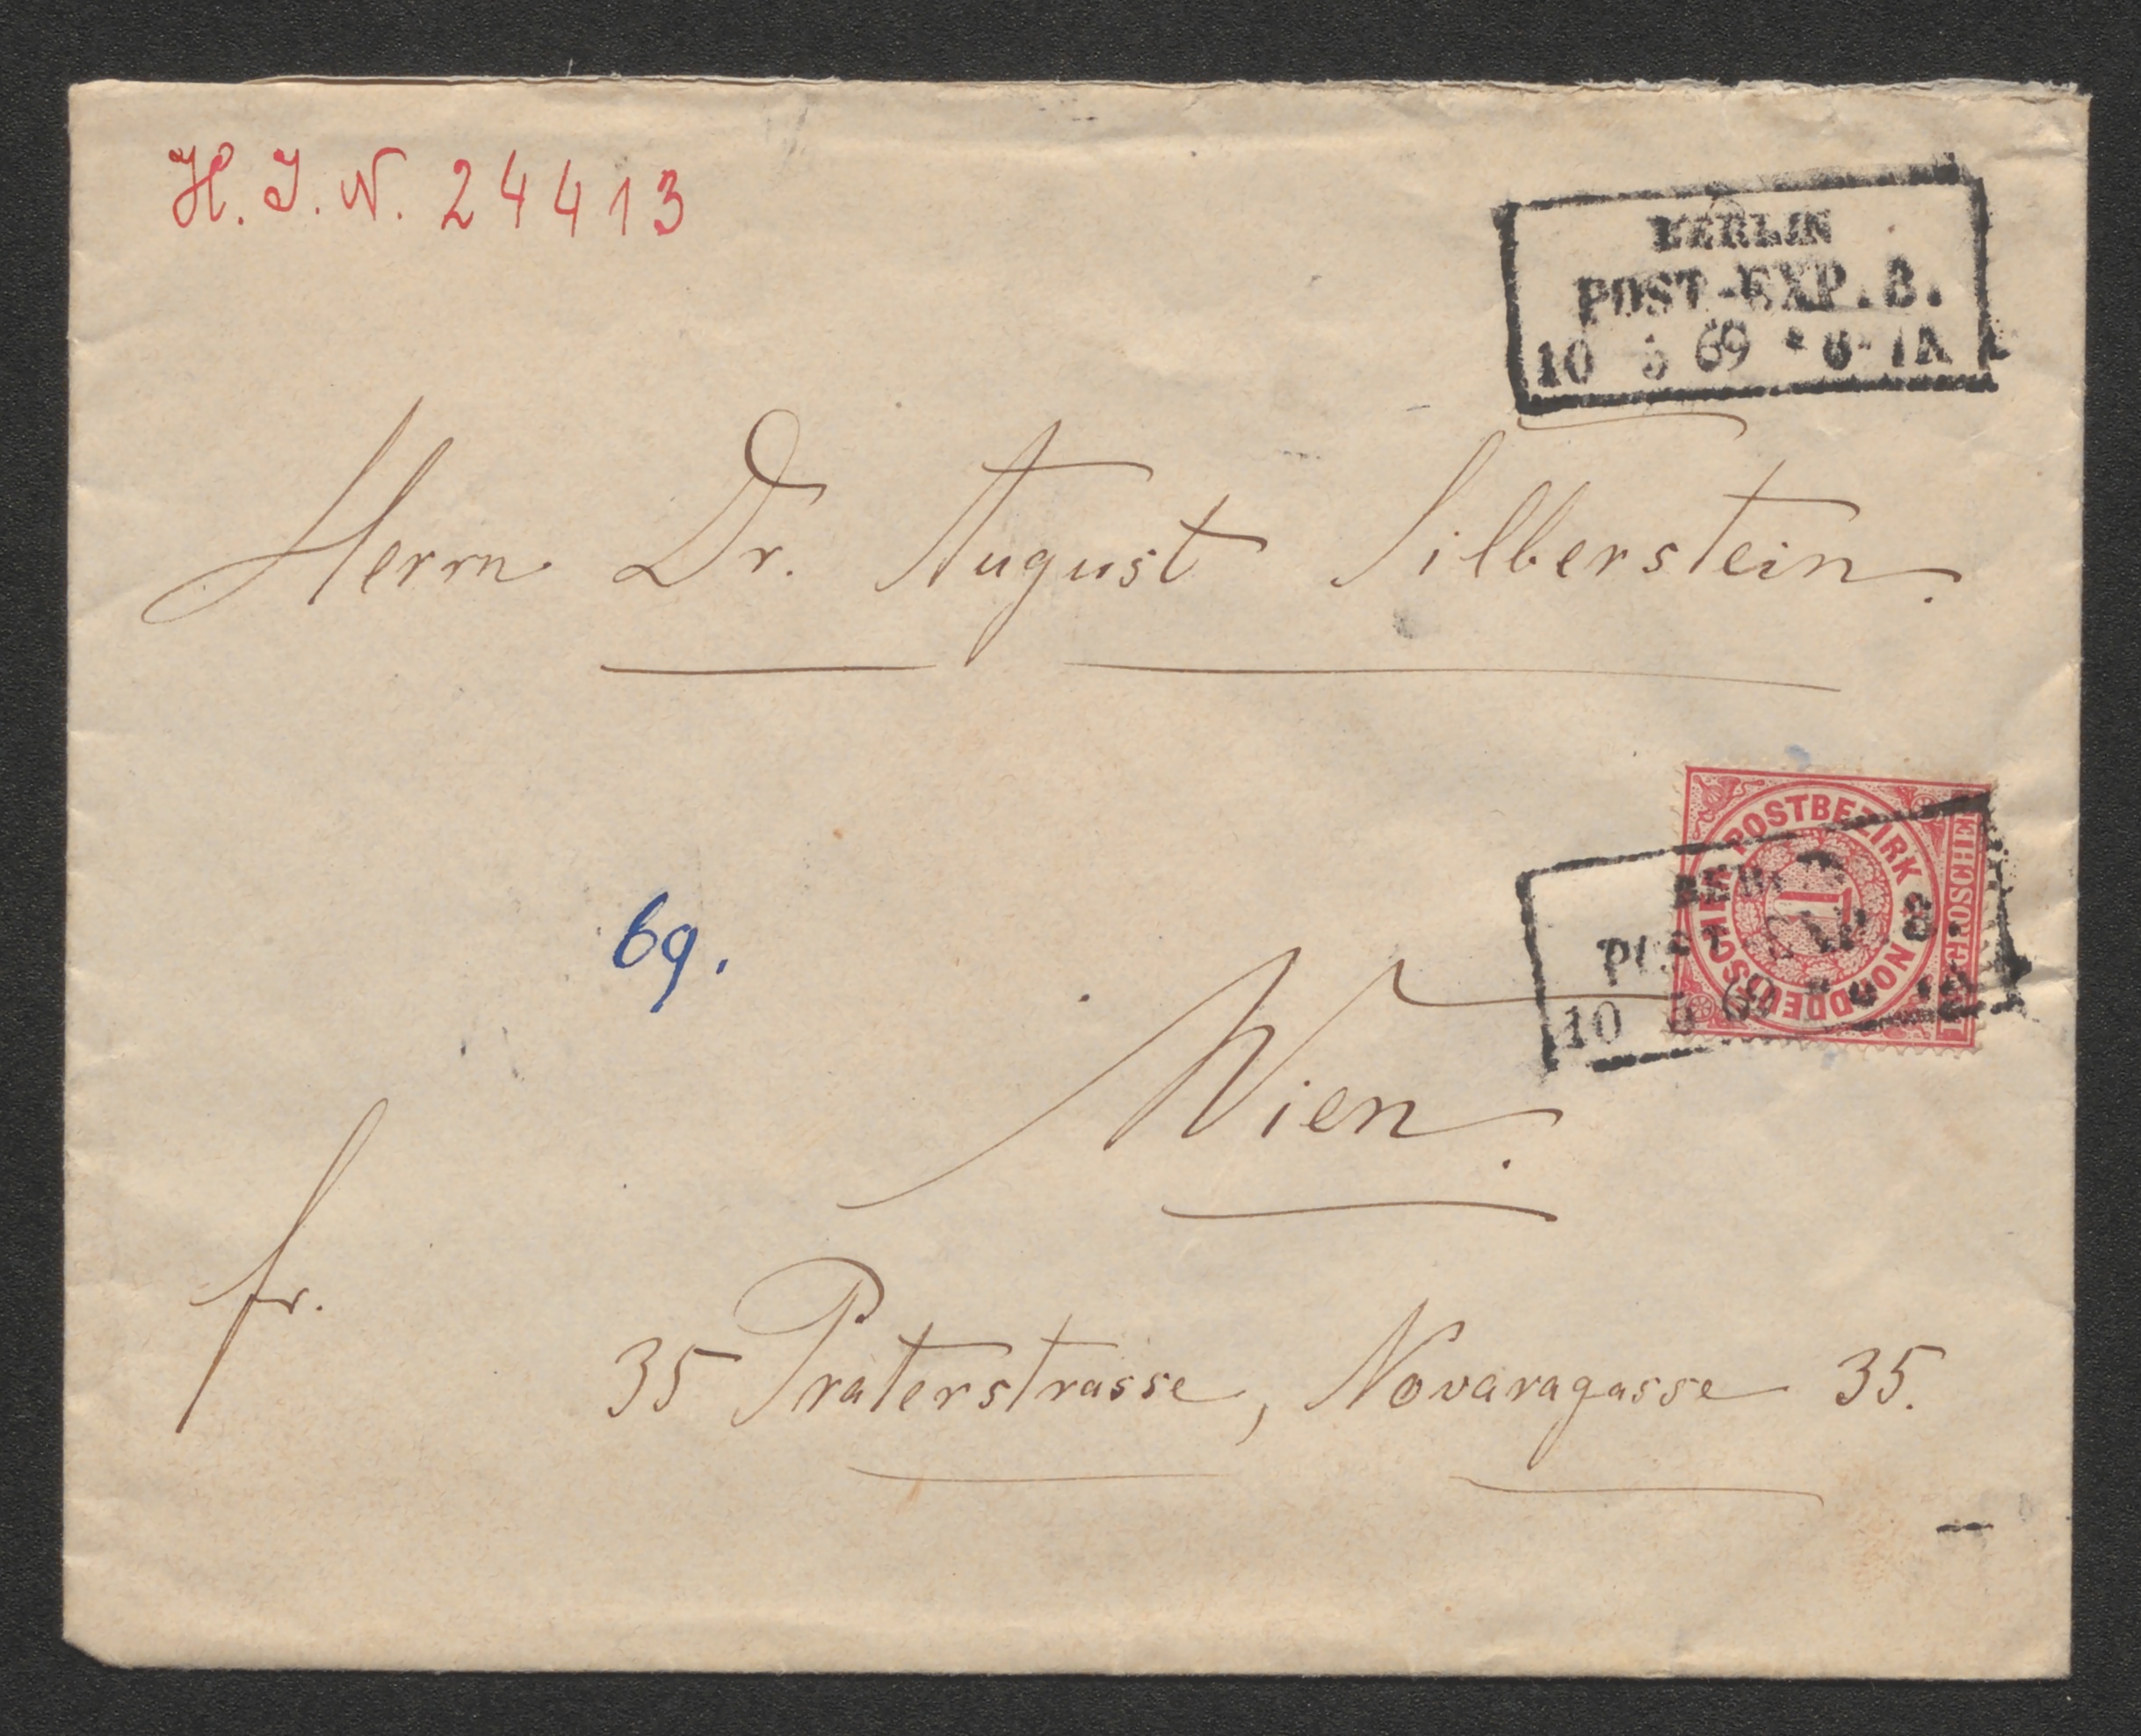 H. I. N. 24413
BERLIN
POST-EXP. 8.
10 5 69
Herrn Dr. August Silberstein.
NORDDEUTSCHER POSTBEZIRK
1
1 GROSCHEN
BERLIN
POST-EXP. 8.
10 5 69
69.
Wien.
fr.
35 Praterstrasse, Novaragasse 35.